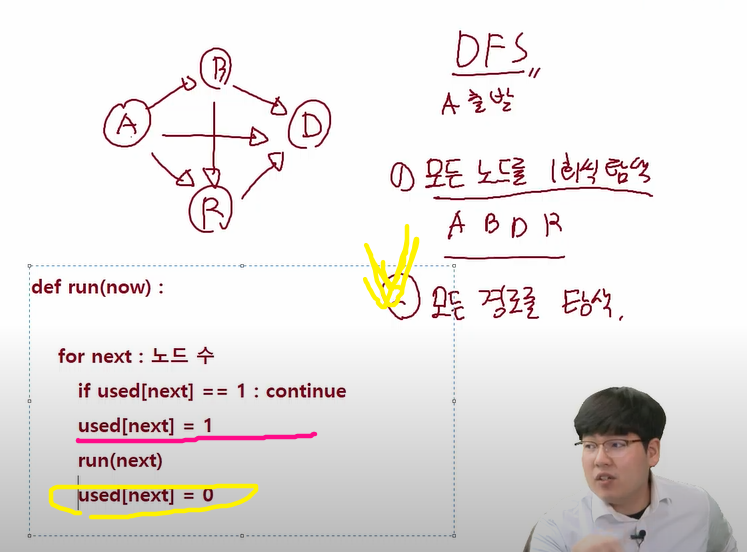 DFS
A 출발
B
A
D
R
① 모든 노드를 1회씩 탐색
A B D R
② 모든 경로를 탐색.
def run(now) :
for next : 노드 수
if used[next] == 1 : continue
used[next] = 1
run(next)
used[next] = 0